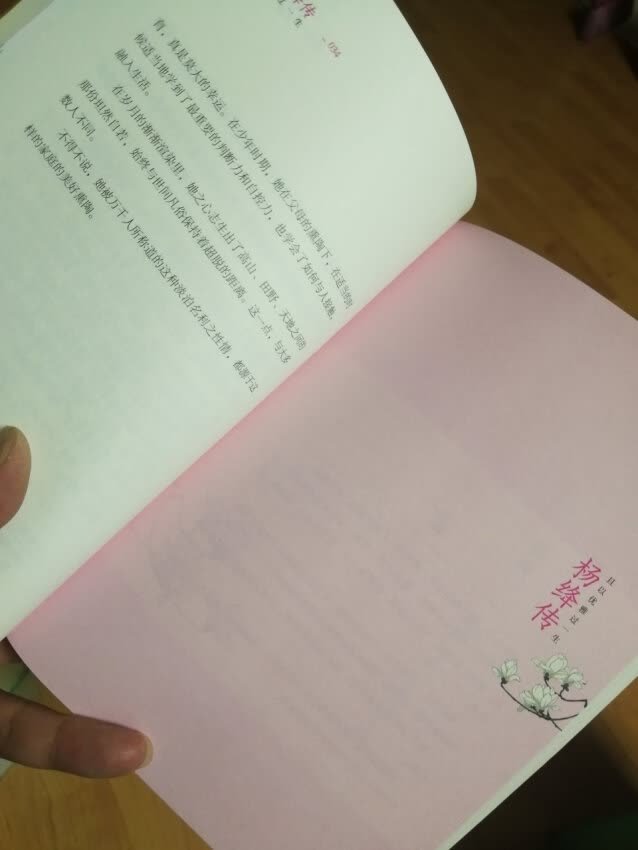 传
过一生
034
育，真是莫大的幸运。在少年时期，她在父母的熏陶下，在适当的时
候适当地学到了最重要的判断力和自控力，也学会了如何与人接触，
融入生活。
在岁月的渐渐渲染里，她之心志生出了高山、田野、天地之间的
那份坦然自若，始终与世间凡俗保持着超脱的距离。这一点，与大多
数人不同。
不得不说，她被万千人所称道的这种淡泊名利之性情，都源于这
样的家庭的美好熏陶。
杨绛传
且以优雅过一生